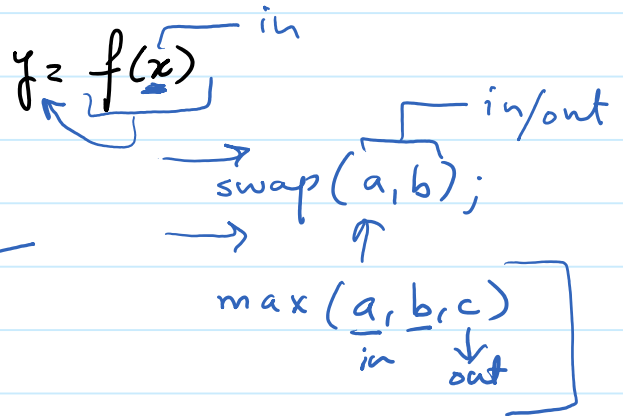 in
y = f(x)
in/out
swap(a,b);
max(a,b,c)
in
out